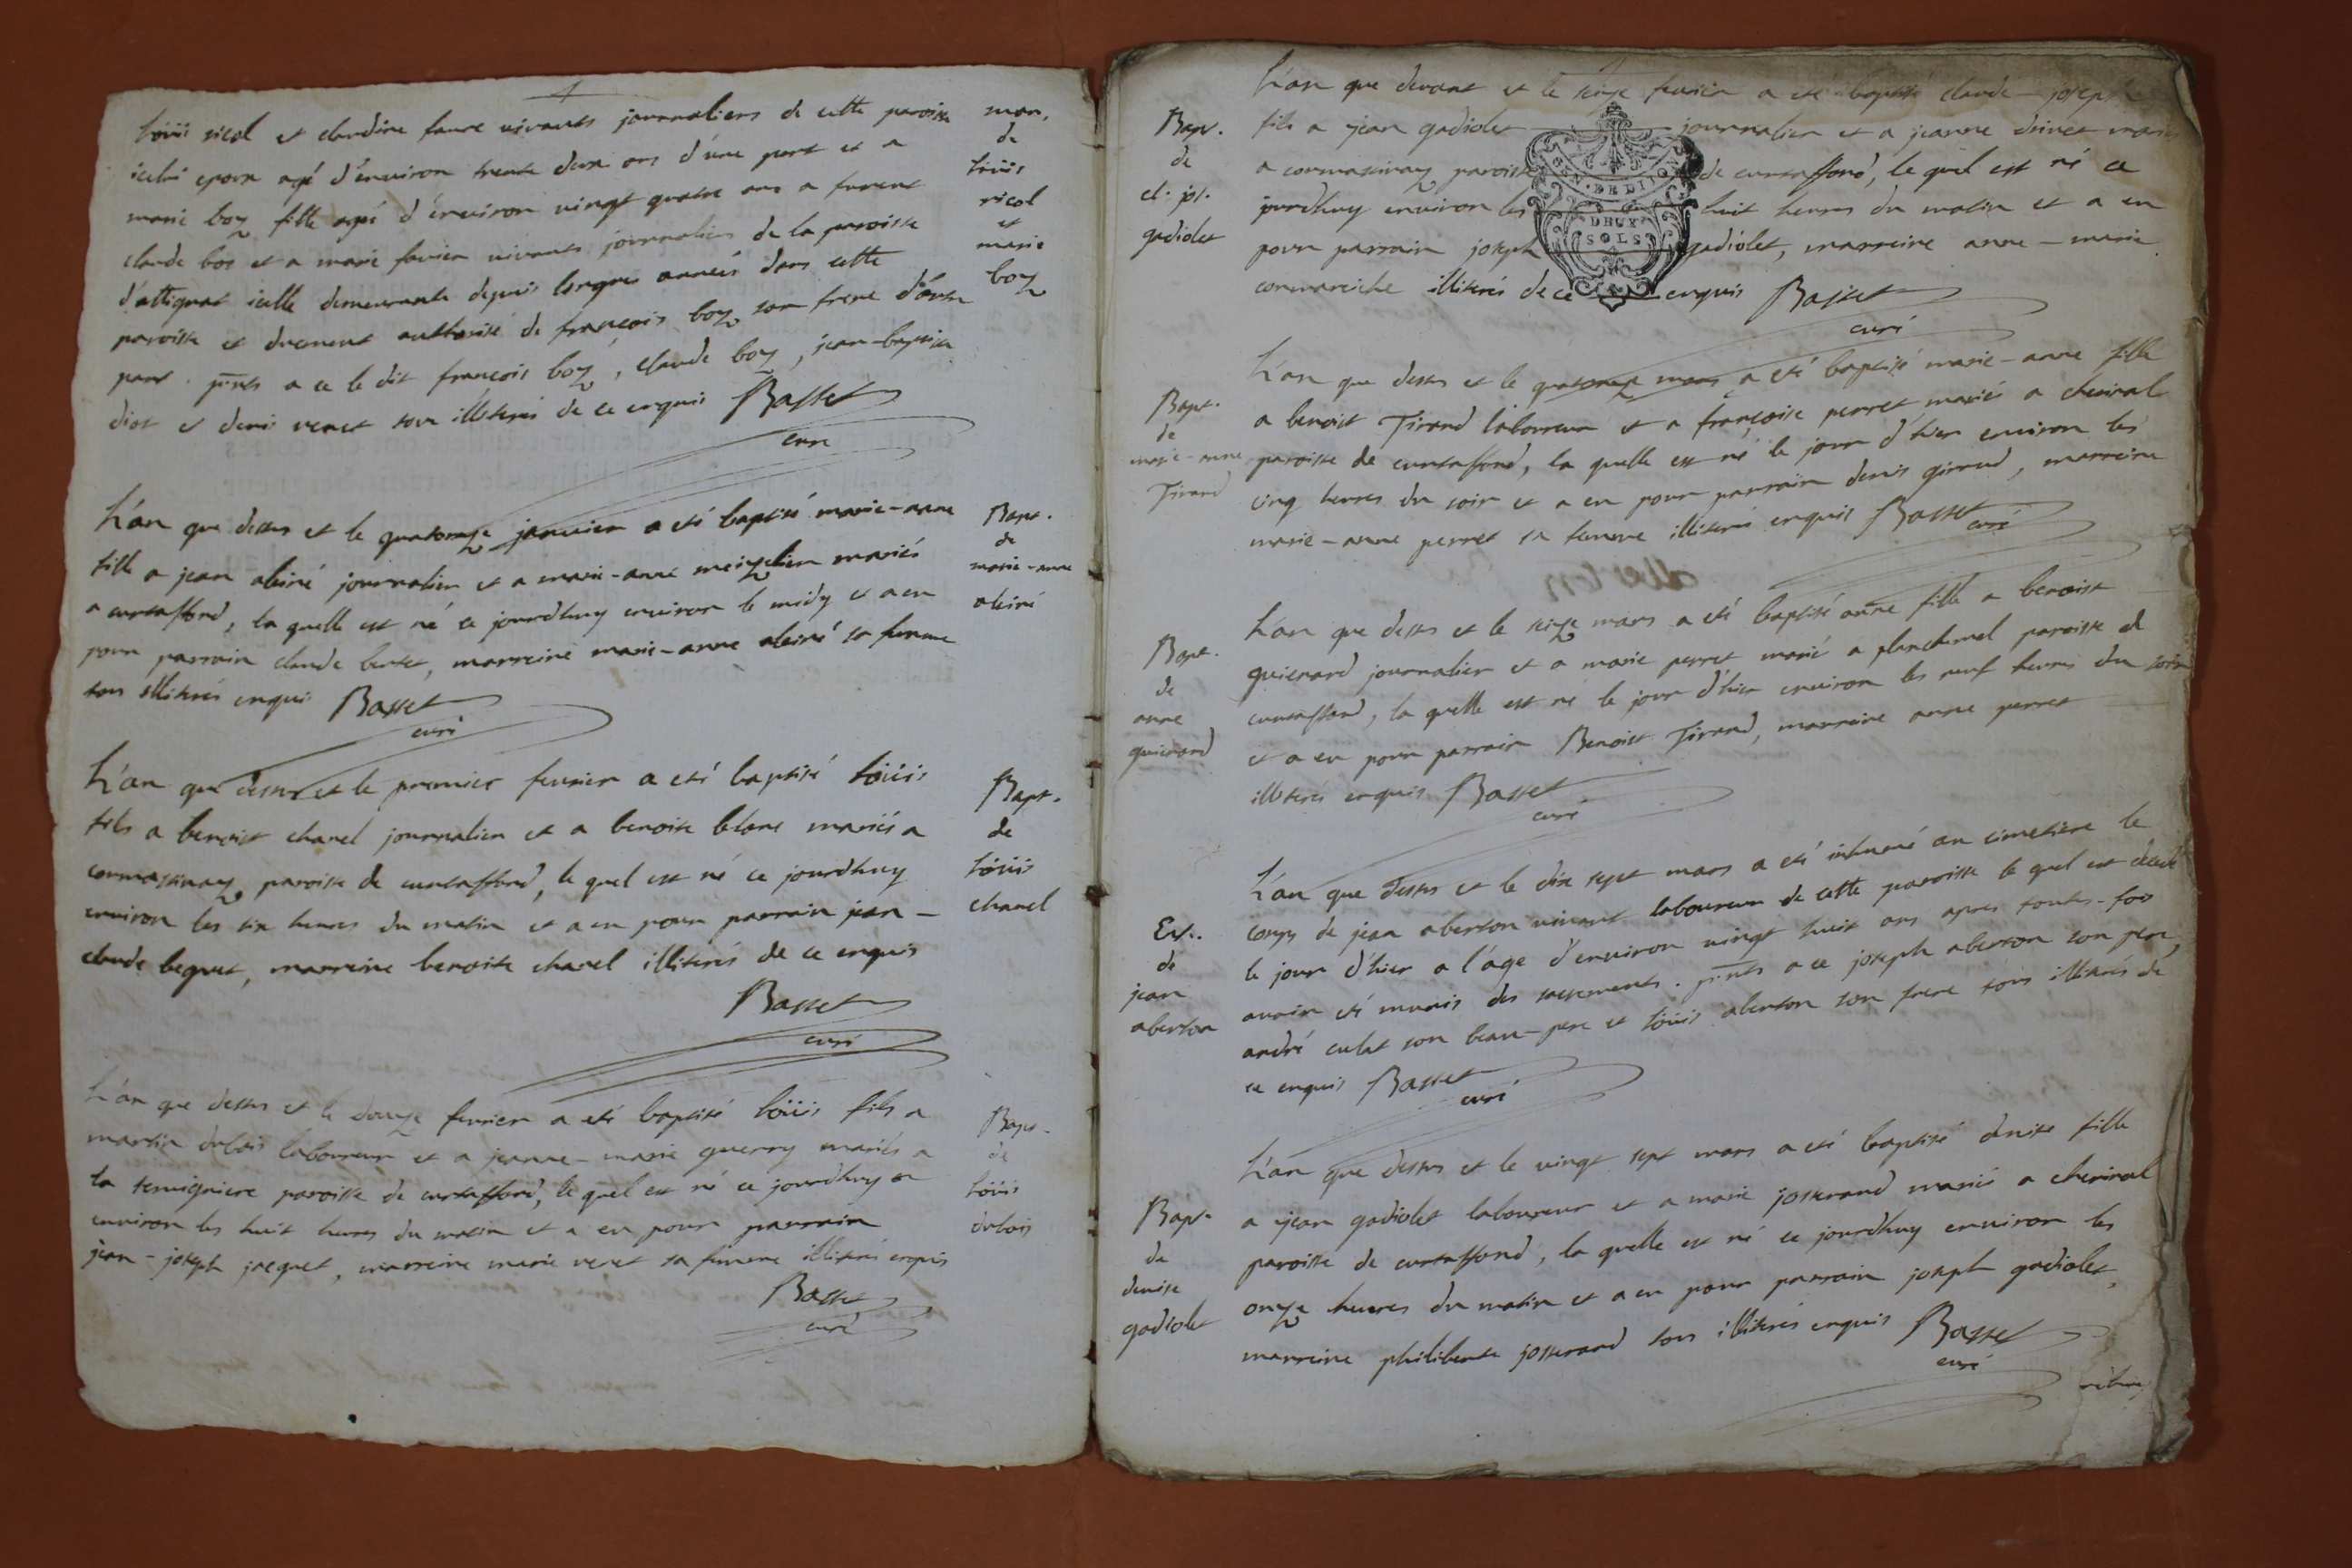 loüis nicol et claudine faure vivants journaliers de cette paroisse
icelui epoux agé d'environ trente deux ans d'une part et a
marie boz fille agée d'environ vingt quatre ans a furent
claude boz et a marie favier vivants journaliers de la paroisse
d'attignat icelle demeurante depuis longues années dans cette
paroisse et duement authorisé de françois boz son frere d'autre
part. pnts a ce le dit francois boz, claude boz, jean-baptiste
diot et denis venet tous illiterés de ce enquis Basset
curé
mar.
de
loüis
nicol
et
marie
boz
L'an que dessus et le quatorze janvier a eté baptisé marie-anne
fille a jean aleiné journalier et a marie-anne mariés
a curtaffond, la quelle est né ce jourdhuy environ le midy et a eu
pour parrain claude, marreine marie-anne aleiné sa femme
tous illiterés enquis Basset
curé
Bapt.
de
marie-anne
aleiné
L'an que dessus et le premier fevrier a eté baptisé loüis
fils a benoist chanel journalier et a benoite blanc mariés a
cormassinay paroisse de curtaffond, le quel est né ce jourdhuy
environ les six heures du matin et a eu pour parrain jean-
claude beguet, marreine benoite chanel illiterés de ce enquis
Basset
curé
Bapt.
de
loüis
chanel
L'an que dessus et le douze fevrier a eté baptisé loüis fils a
martin dubois laboureur et a jeanne-marie guerry mariés a
la paroisse de curtaffond, le quel est né ce jourdhuy a
environ les huit heures du matin et a eu pour parrain
jean-joseph jacquet, marreine marie venet sa femme illiterés enquis
Basset
curé
Bapt.
de
loüis
dubois
L'an que devant et le seize fevrier a eté baptisé claude-joseph
fils a jean gadiolet journalier et a jeanne mariés
a cormassinay paroisse de curtaffond, le quel est né ce
jourdhuy environ les huit heures du matin et a eu
pour parrain joseph gadiolet, marreine anne-marie
cormareiche illiterés de ce enquis Basset
curé
Bapt.
de
cl. jos.
gadiolet
GEN. DE DIJON
DEUX
SOLS
L'an que dessus et le quatorze mars a eté baptisé marie-anne fille
a benoist Tirand laboureur et a françoise perret mariés a cheviral
paroisse de curtaffond, la quelle est né le jour d'hier environ les
cinq heures du soir et a eu pour parrain denis giraud, marreine
marie-anne perret sa femme illiterés enquis Basset
curé
Bapt.
de
marie-anne
Tirand
L'an que dessus et le seize mars a eté baptisé anne fille a benoist
guienard journalier et a marie perret marié a planchemel paroisse d
curtaffond, la quelle est né le jour d'hier environ les neuf heures du soir
et a eu pour parrain Benoist Tirand, marreine anne perret
illiterés enquis Basset
curé
Bapt.
de
anne
guienard
L'an que dessus et le dix sept mars a eté inhumé au cimetiere le
corps de jean aberton vivant laboureur de cette paroisse le quel est decedé
le jour d'hier a l'age d'environ vingt huit ans apres toutes-fois
avoir eté munis des sacrements. pnts a ce joseph aberton son pere,
andré culat son beau-pere et loüis aberton son frere tous illiterés de
ce enquis Basset
curé
Ent.
de
jean
aberton
L'an que dessus et le vingt sept mars a eté baptisé denise fille
a jean gadiolet laboureur et a marie josserand mariés a cheviral
paroisse de curtaffond, la quelle est né ce jourdhuy environ les
onze heures du matin et a eu pour parrain joseph gadiolet,
marreine philiberte josserand tous illiterés enquis Basset
curé
Bapt.
de
denise
gadiolet